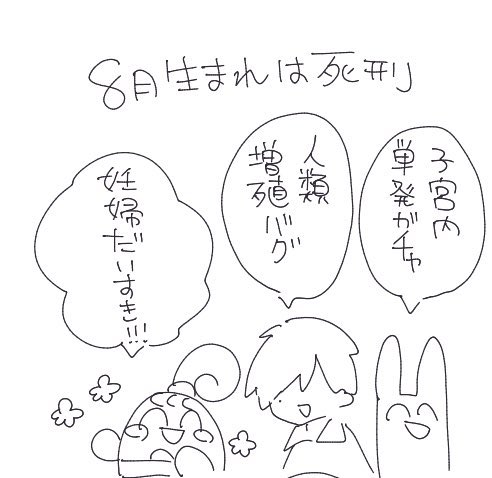 8月生まれは死刑
子宮内
単発ガチャ
人類
増殖バグ
妊婦だいすき!!!